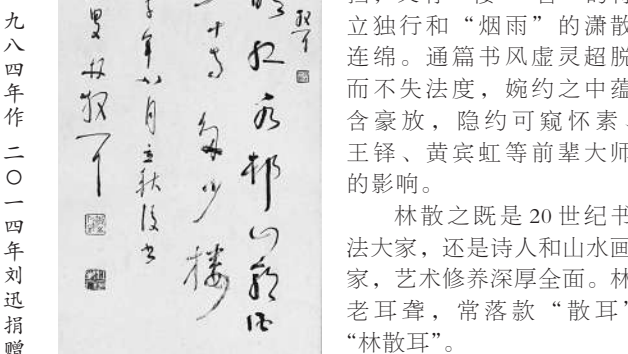 九八四年作 二〇一四年刘迅捐赠
水邨山郭酒
多少楼
年八月立秋后书
立独行和“烟雨”的潇散
连绵。通篇书风虚灵超脱
而不失法度，婉约之中蕴
含豪放，隐约可窥怀素、
王铎、黄宾虹等前辈大师
的影响。
林散之既是20世纪书
法大家，还是诗人和山水画
家，艺术修养深厚全面。林
老耳聋，常落款“散耳”
“林散耳”。